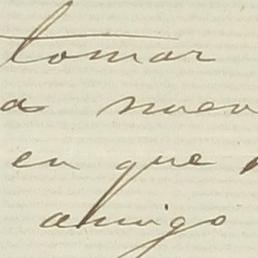 tomar
as nuev
en que
amigo